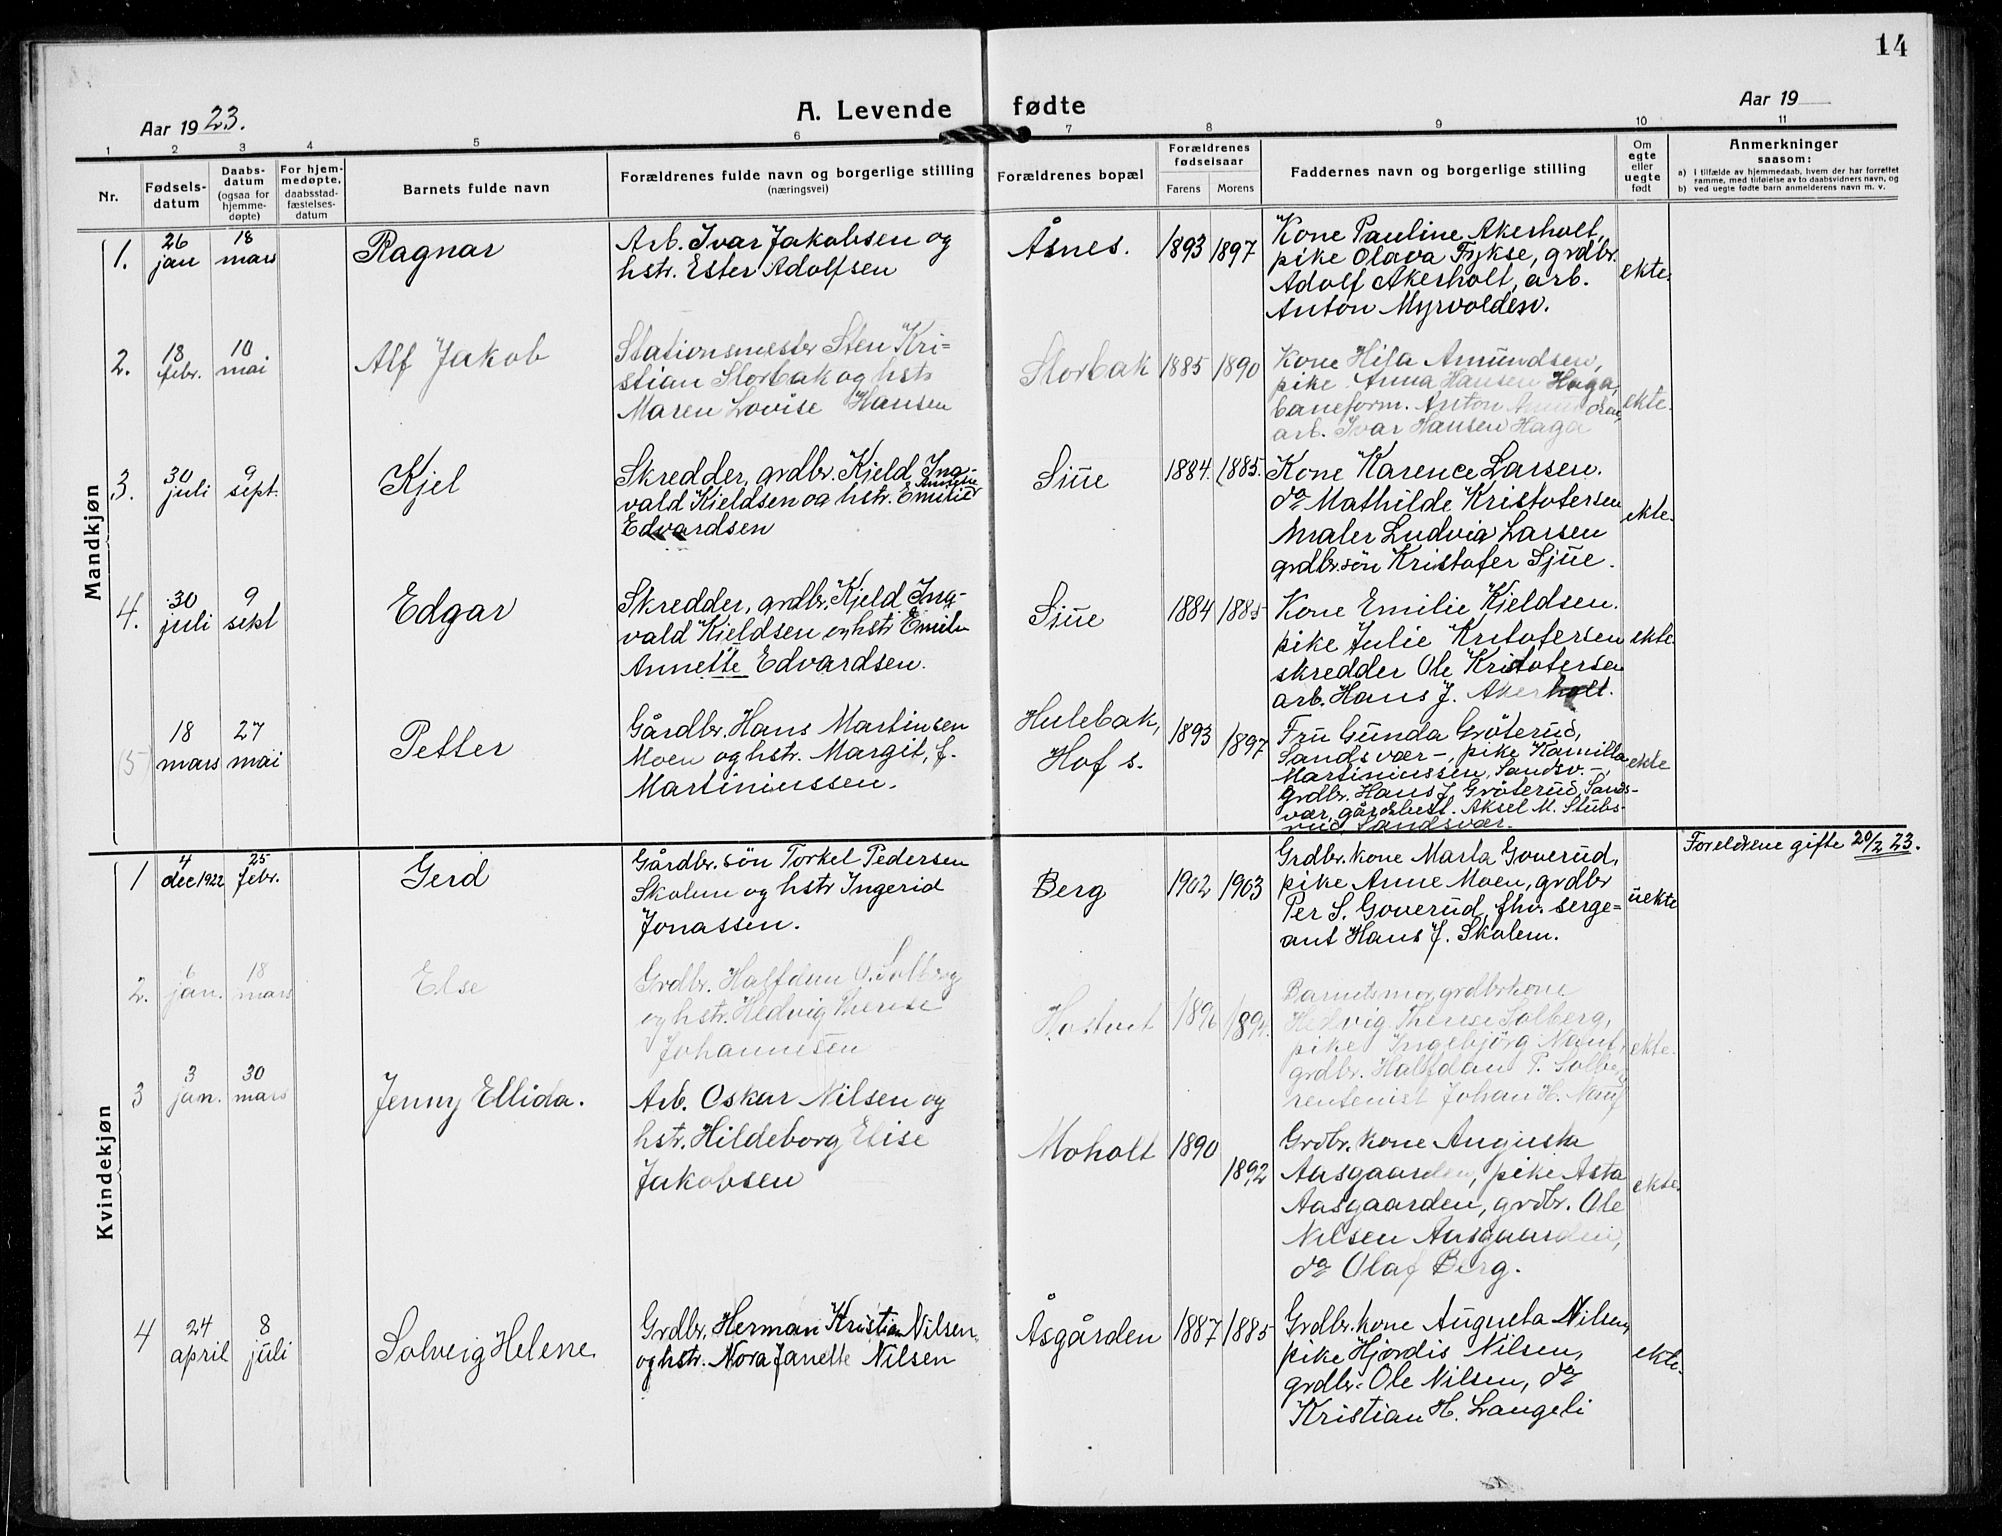 14
Aar 1923.
A. Levende fødte
Aar 19
1 2 3 4 5 6 7 8 9 10 11
Nr.
Fødsels-
datum
Daabs-
datum
(ogsaa for
hjemme-
døpte)
For hjem-
medøpte,
daabsstad-
fæstelses-
datum
Barnets fulde navn
Forældrenes fulde navn og borgerlige stilling
(næringsvei)
Forældrenes bopæl
Forældrenes
fødselsaar
Farens Morens
Faddernes navn og borgerlige stilling
Om
egte
eller
uegte
født
Anmerkninger
saasom:
a) I tilfælde av hjemmedaab, hvem der har forrettet
ramme, med tilføielse av to daabsvidners navn, og
b) ved uegte fødte barn anmelderens navn m. v.
Mandkjøn
1.
26
jan
18
mars
Ragnar
Arb. Ivar Jakobsen og
hstr. Ester Adolfsen
Åsnes.
1893 1897
Kone Pauline Akerholt,
pike Olava Fykse, grdbr.
Adolf Akerholt, arb.
Anton Myrvolden.
ekte.
2.
18
febr.
10
mai
Alf Jakob
Stationsmester Sten Kri-
stian Storbak og hstr
Maren Lovise Hansen
Storbak
1885 1890
Kone Hila Amundsen,
pike Anna Hansen Haga,
baneform. Anton
arb. Ivar Hansen Haga
ekte.
3.
30
juli
9
sept.
Kjel
Skredder, grdbr. Kjeld Ing-
vald Kjeldsen og hstr. Emilie
Annette
Edvardsen
Sjue
1884. 1885.
Kone Karence Larsen.
do Mathilde Kristofersen
maler Ludvig Larsen
grdbr.søn Kristofer Sjue.
ekte.
4.
30
juli
9
sept
Edgar
Skredder, grdbr. Kjeld Ing-
vald Kjeldsen og hstr Emilie
Annette Edvardsen.
Sjue
1884 1885
Kone Emilie Kjeldsen.
pike Julie Kristofersen
skredder Ole Kristofersen
arb. Hans J. Akerholt.
ekte.
5
18
mars
27
mai
Petter
Gårdbr. Hans Martinsen
Moen og hstr. Margit, f.
Martiniussen.
Hulebak,
Hof s.
1893 1897
Fru Gunda Grøterud,
Sandsvær-, pike Kamilla
Martiniussen, Sandsv.-,
grdbr. Hans J. Grøterud, Sands-
vær, gårdbest. Aksel M. Stubs-
rud, Sandsvær.
ekte
Kvindekjøn
1
4
dec 1922
25
febr.
Gerd
Gårdbr.søn Torkel Pedersen
Skolem og hstr Ingerid
Jonassen.
Berg
1902 1903
Grdbr.kone Marta Goverud,
pike Anne Moen, grdbr
Per S. Goverud, fhv. serge-
ant Hans J. Skolem.
uekte
Foreldrene gifte 20/2 23.
2.
6
jan.
18
mars
Else
Grdbr. Halfdan O. Solberg
og hstr. Hedvig Therese
Johannesen
Hostvet
1896 1894
Barnets mor, grdbrkone
Hedvig Therese Solberg,
pike Ingebjørg
grdbr. Halfdan P. Solberg
rentenist Johan H.
ekte.
3
3
jan.
30
mars
Jenny Ellida.
Arb. Oskar Nilsen og
hstr. Hildeborg Elise
Jakobsen
Moholt
1890
1892
Grdbr. kone Augusta
Aasgaarden, pike Asta
Aasgaarden, grdbr. Ole
Nilsen Aasgaarden,
do Olaf Berg.
ekte.
4
24
april
8
juli
Solveig Helene.
Grdbr. Herman Kristian Nilsen
og hstr. Nora Janette Nilsen
Åsgården
1887 1885
Grdbr.kone Augusta Nilsen,
pike Hjørdis Nilsen,
grdbr. Ole Nilsen, do
Kristian H. Langeli
ekte.